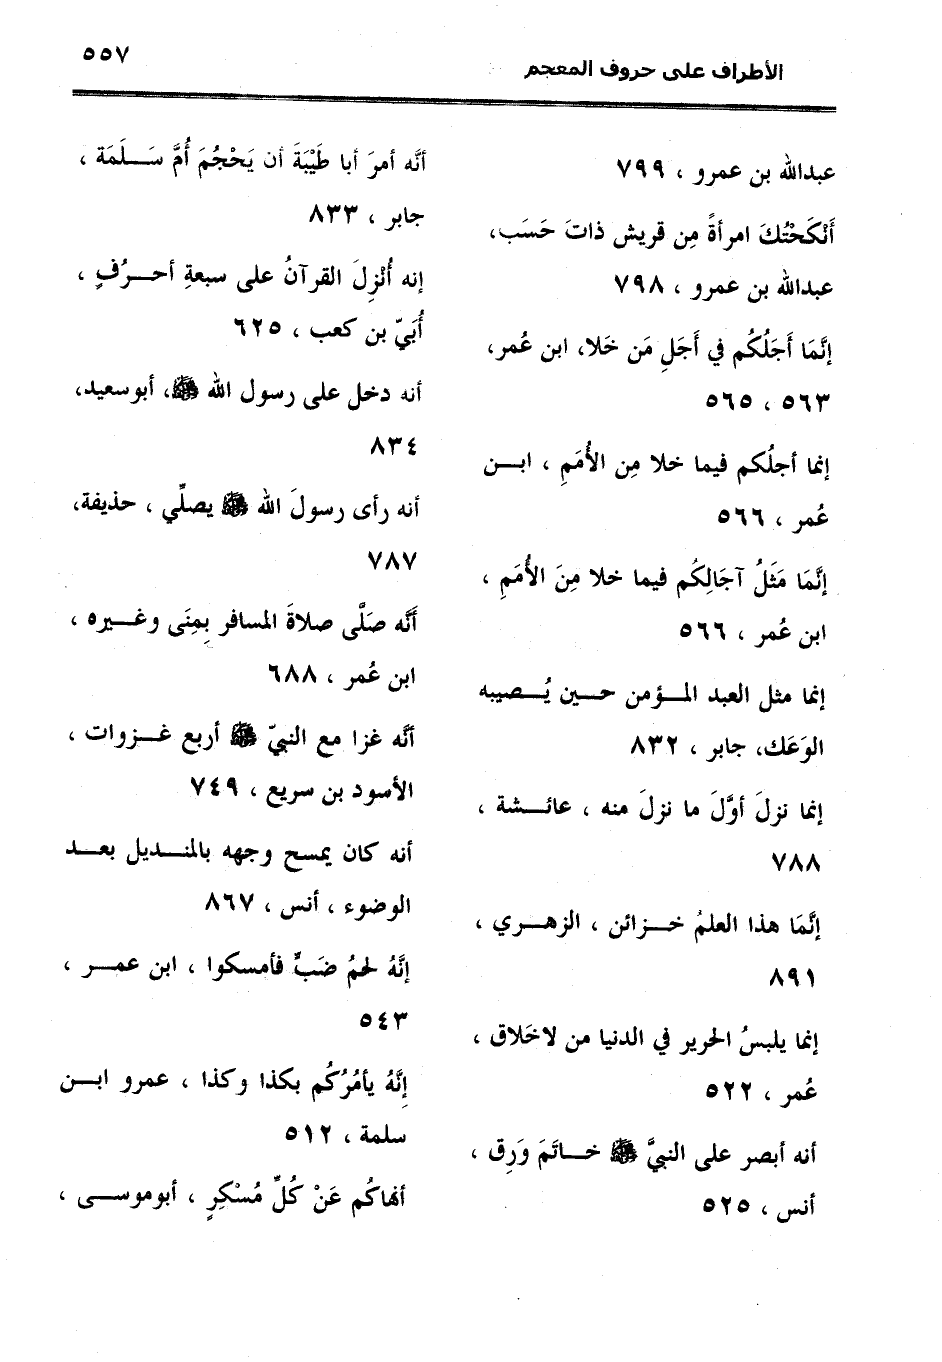 الأطراف على حروف المعجم
٥٥٧
عبدالله بن عمرو ، ٧٩٩
أَنْكَحْتُكَ امرأةً مِن قريش ذاتَ حَسَب،
عبدالله بن عمرو ، ٧٩٨
إنَّمَا أَجَلُكُم في أَجَلِ مَن خَلا، ابن عُمر،
٥٦٣ ، ٥٦٥
إنما أجلُكم فيما خلا مِن الأُمَمِ ، ابـــن
عُمر ، ٥٦٦
إنَّمَا مَثَلُ آجَالِكُم فيما خلا مِنَ الأُمَمِ ،
ابن عُمر ، ٥٦٦
إنما مثل العبد المـــؤمن حـــين يُـــصيبه
الوَعَك، جابر ، ٨٣٢
إنما نزلَ أوَّلَ ما نزلَ منه ، عائـــشة ،
٧٨٨
إنَّمَا هذا العلمُ خـــزائن ، الزهـــري ،
٨٩١
إنما يلبسُ الحرير في الدنيا من لاخَلاق ،
عُمر ، ٥٢٢
أنه أبصر على النبيَّ ﷺ خـــاتَمَ وَرِق ،
أنس ، ٥٢٥
أنَّه أمرَ أبا طَيْبَةَ أن يَحْجُمَ أُمَّ سَـــلَمَة ،
جابر ، ٨٣٣
إنه أُنْزِلَ القرآنُ على سبعةِ أحـــرُفٍ ،
أُبَيّ بن كعب ، ٦٢٥
أنه دخل على رسول الله ﷺ، أبوسعيد،
٨٣٤
أنه رأى رسولَ الله ﷺ يصلِّي ، حذيفة،
٧٨٧
أَنَّه صَلَّى صلاةَ المسافر بِمِنَى وغـــيره ،
ابن عُمر ، ٦٨٨
أنَّه غزا مع النبيّ ﷺ أربع غـــزوات ،
الأسود بن سريع ، ٧٤٩
أنه كان يمسح وجهه بالمنـــديل بعـــد
الوضوء ، أنس ، ٨٦٧
إنَّهُ لحمُ ضَبٍّ فأمسكوا ، ابن عمـــر ،
٥٤٣
إِنَّهُ يأمُرُكُم بكذا وكذا ، عمرو ابـــن
سلمة ، ٥١٢
أنهاكُم عَنْ كُلِّ مُسْكِرٍ ، أبوموســـى ،